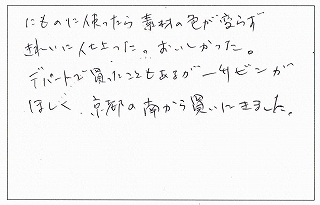 にものに使ったら素材の色が変らず
きれいに仕上った。おいしかった。
デパートで買ったこともあるが一升ビンが
ほしく 京都の南から買いにきました。